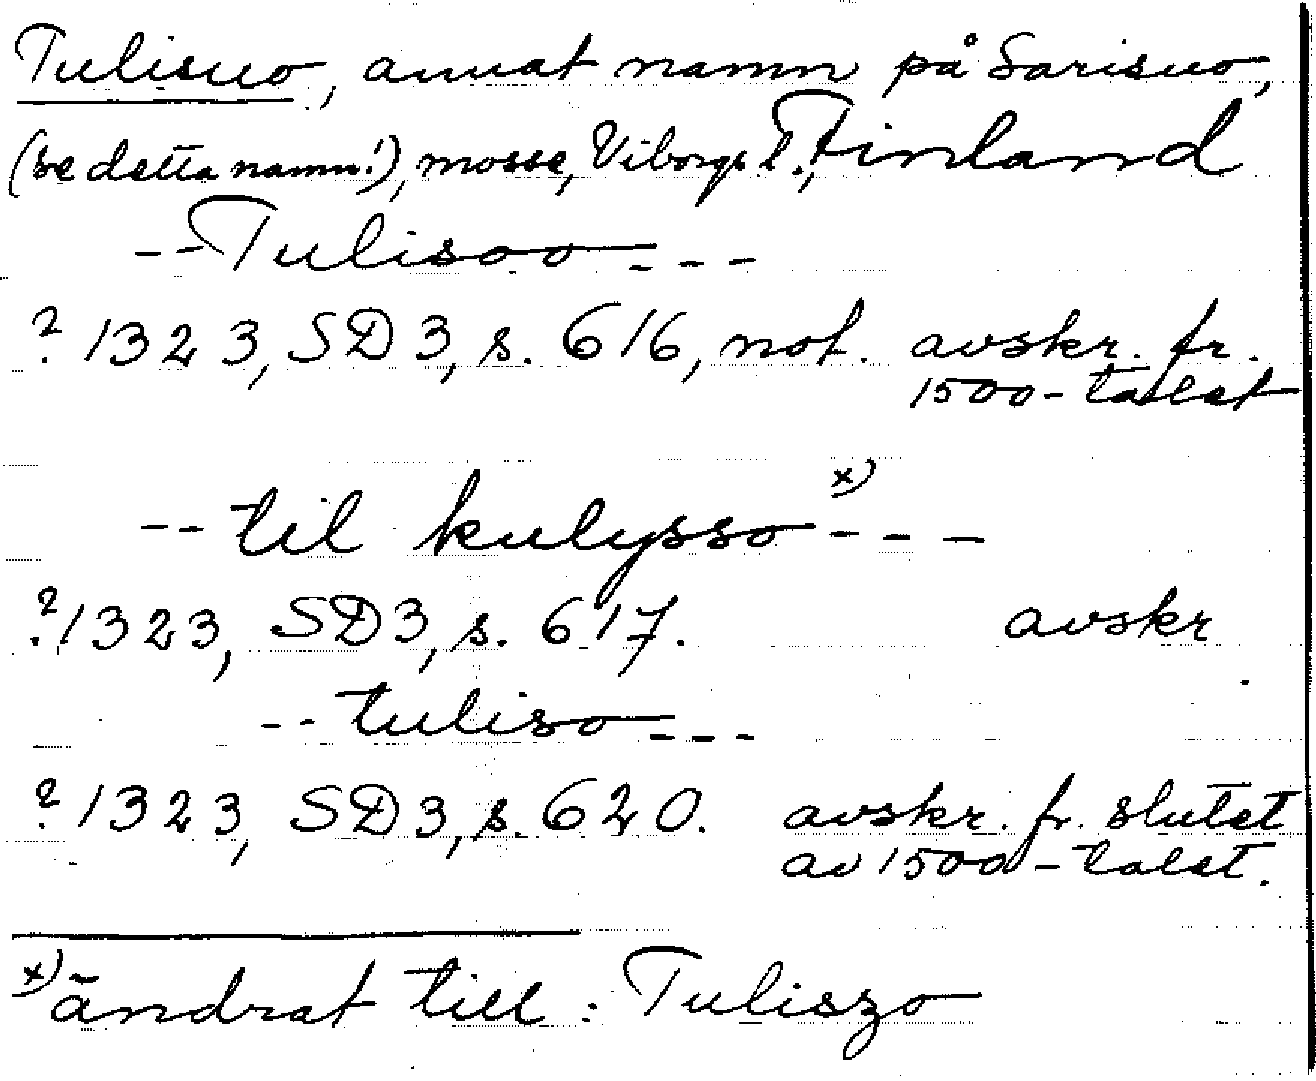 Tulisuo, annat namn på Sarisuo,
(se detta namn!), mosse, Viborgs l., Finland
-- Tulisoo ---
? 1323, SD 3, s. 616, not. avskr. fr.
1500-talet
-- til kulysso x) ---
? 1323, SD 3, s. 617. avskr.
-- tuliso ---
? 1323, SD 3, s. 620. avskr. fr. slutet
av 1500-talet.
x) ändrat till: Tuliszo